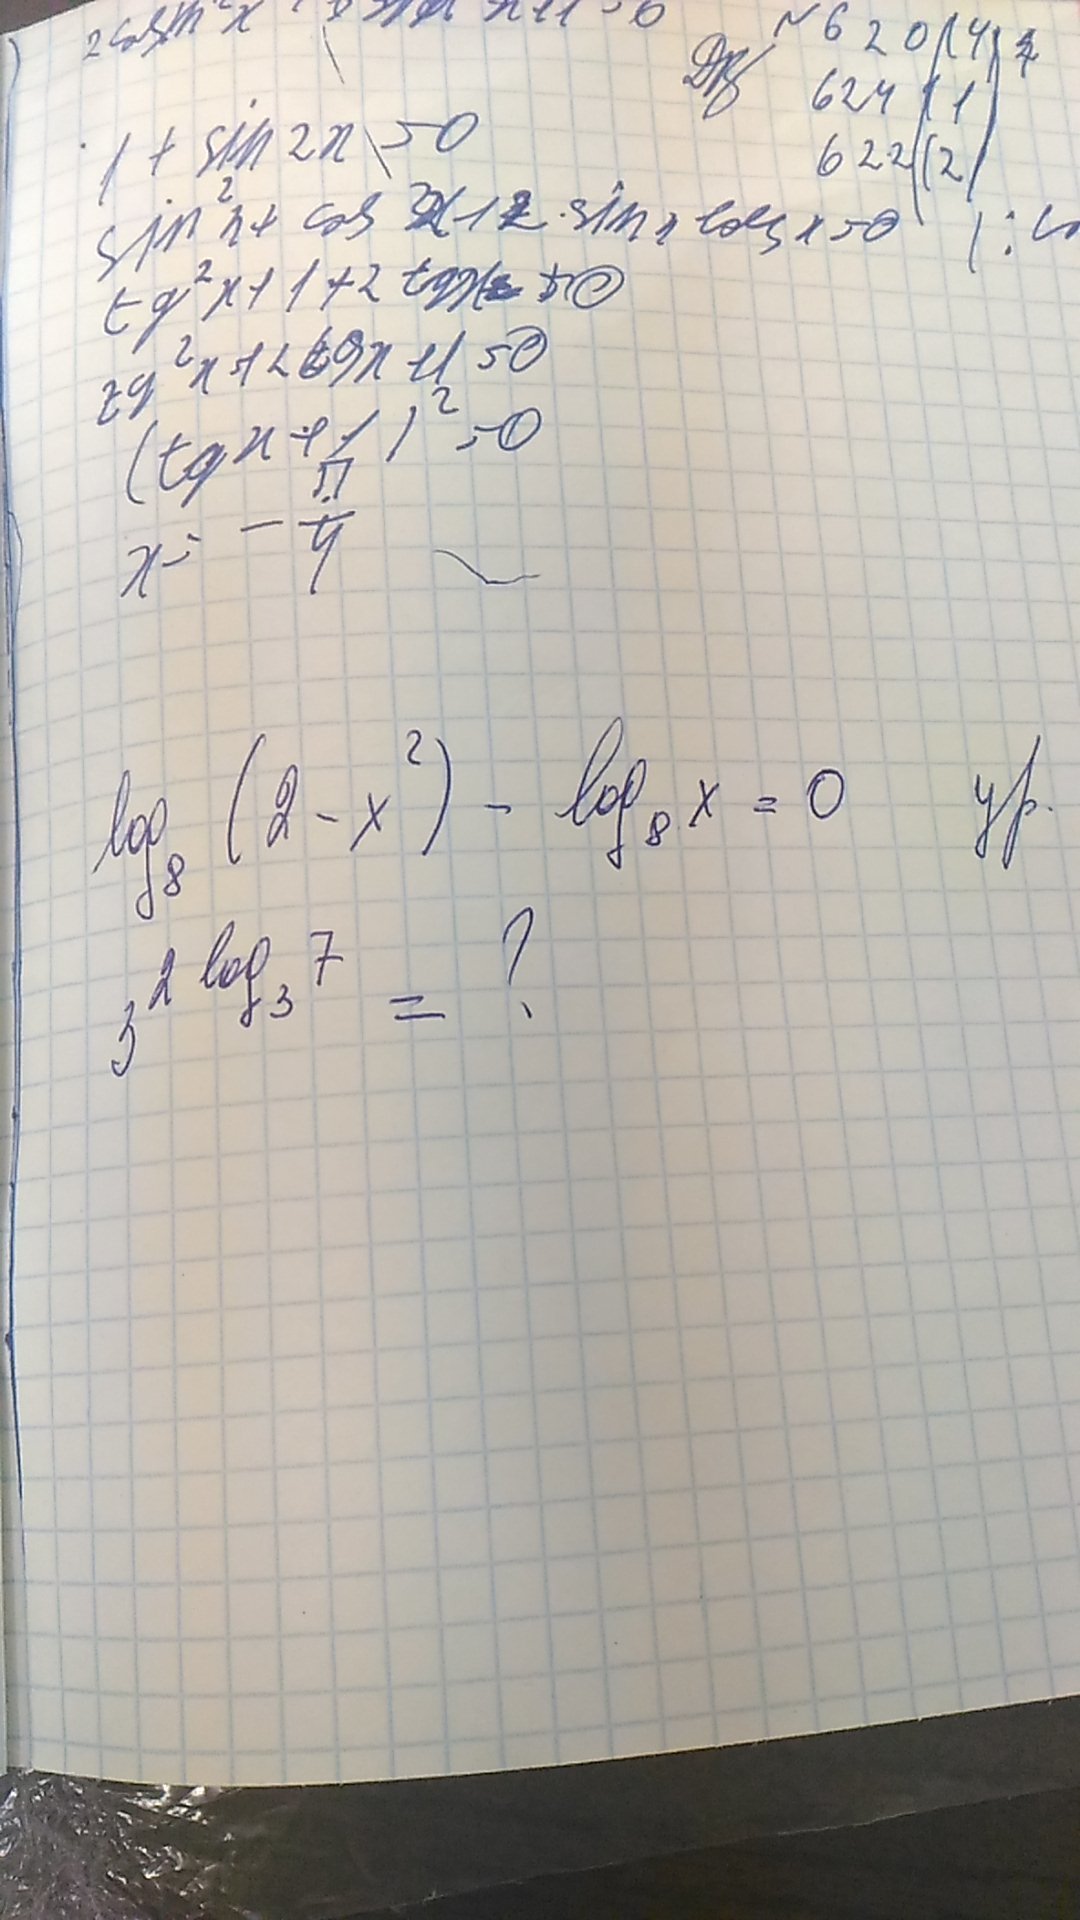 № 620 (4)
Д/з 624 (1)
622 (2)
1 + sin 2x = 0
sin²x + cos²x + 2 · sin x cos x = 0
tg²x + 1 + 2 tgx = 0
tg²x + 2 tgx + 1 = 0
(tgx + 1)² = 0
x = - π/4
log₈ (2 - x²) - log₈ x = 0 ур.
3^(2 log₃ 7) = ?